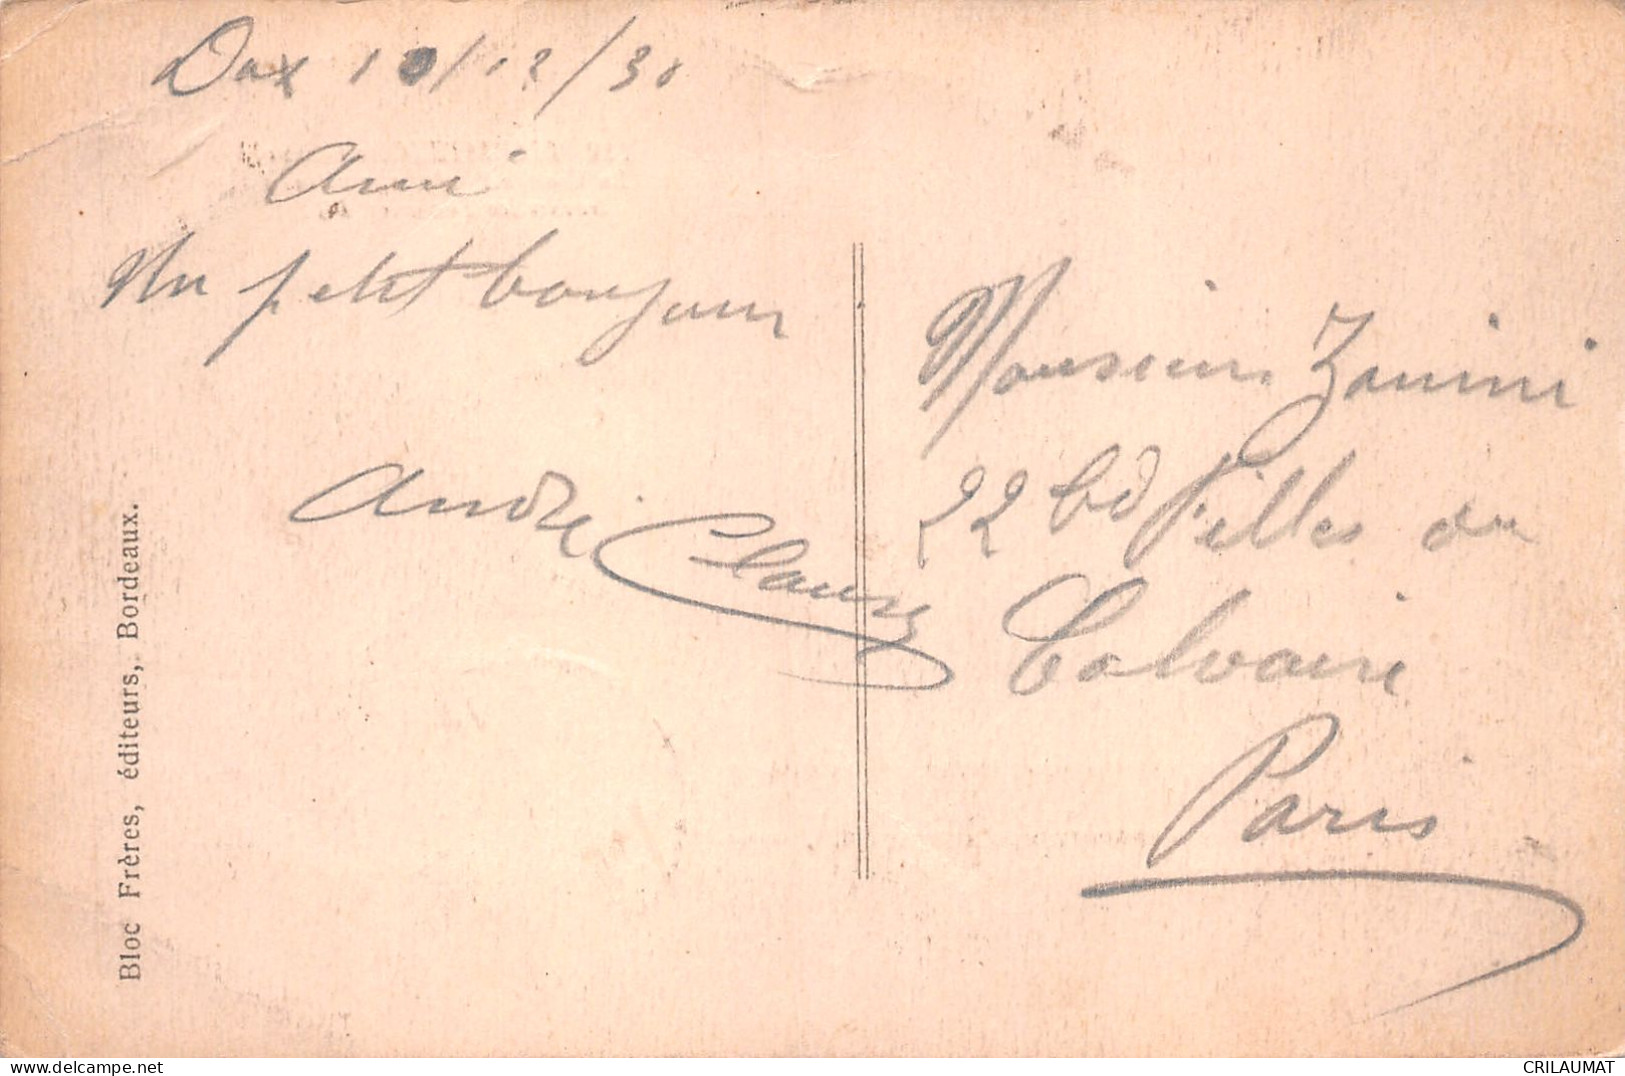 Dax 10/12/30
Ami
Un petit bonjour
André
Monsieur Zanini
22 bd Filles du
Calvaire
Paris
Bloc Frères, éditeurs, Bordeaux.
www.delcampe.net
CRILAUMAT